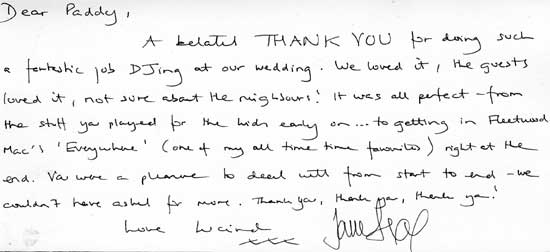 Dear Paddy,
A belated THANK YOU for doing such
a fantastic job DJing at our wedding. We loved it, the guests
loved it, not sure about the neighbours! It was all perfect - from
the stuff you played for the kids early on... to getting in Fleetwood
Mac's 'Everywhere' (one of my all time time favourites) right at the
end. You were a pleasure to deal with from start to end - we
couldn't have asked for more. Thank you, thank you, thank you!
Love Lucinda
xxx